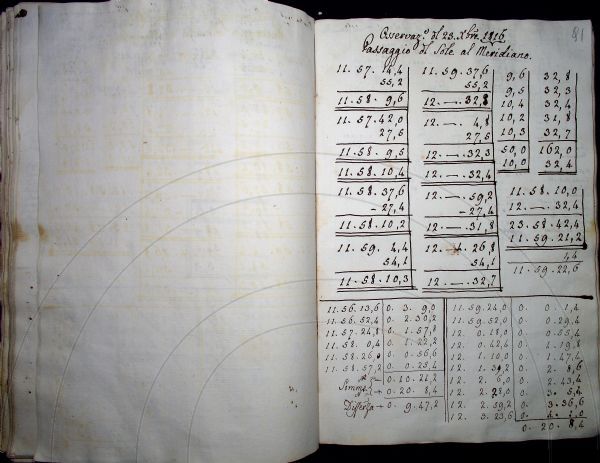 81
Osservaz.e del 23. Xbre. 1816
Passaggio del Sole al Meridiano.
11. 57. 14,4
55,2
11. 58. 9,6
11. 57. 42,0
27,5
11. 58. 9,5
11. 58. 10,4
11. 58. 37,6
- 27,4
11. 58. 10,2
11. 59. 4,4
54,1
11. 58. 10,3
11. 59. 37,6
55,2
12. — . 32,8
12. — . 4,8
27,5
12. — . 32,3
12. — . 32,4
12. — . 59,2
- 27,4
12. — . 31,8
12. 1. 26,8
54,1
12. — . 32,7
9,6 32,8
9,5 32,3
10,4 32,4
10,2 31,8
10,3 32,7
50,0 162,0
10,0 32,4
11. 58. 10,0
12. — . 32,4
23. 58. 42,4
11. 59. 21,2
11. 59. 22,6
11. 56. 13,6 0. 3. 9,0
11. 56. 52,4 0. 2. 30,2
11. 57. 24,8 0. 1. 57,8
11. 58. 0,4 0. 1. 22,2
11. 58. 26,0 0. 0. 56,6
11. 58. 57,2 0. 0. 25,4
0. 10. 21,2
Somme 0. 20. 8,4
Differza 0. 9. 47,2
11. 59. 24,0 0. 0. 1,4
11. 59. 52,0 0. 0. 29,4
12. 0. 18,0 0. 0. 55,4
12. 0. 42,4 0. 1. 19,8
12. 1. 10,0 0. 1. 47,4
12. 1. 31,2 0. 2. 8,6
12. 2. 6,0 0. 2. 43,4
12. 2. 28,0 0. 3. 5,4
12. 2. 59,2 0. 3. 36,6
12. 3. 23,6 0. 4. 1,0
0. 20. 8,4